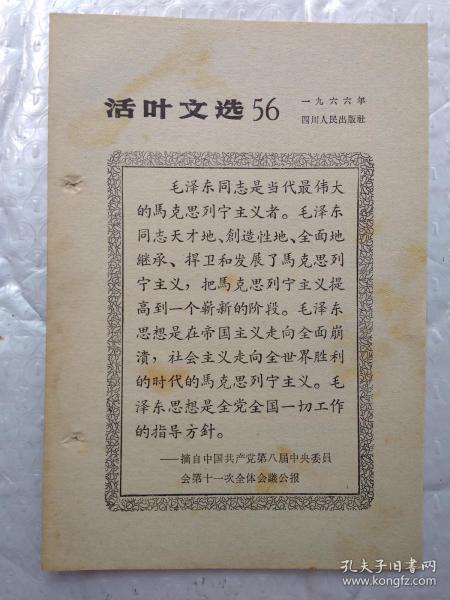 活叶文选 56
一九六六年
四川人民出版社
毛泽东同志是当代最伟大
的馬克思列宁主义者。毛泽东
同志天才地、創造性地、全面地
継承、捍卫和发展了馬克思列
宁主义，把馬克思列宁主义提
高到一个崭新的阶段。毛泽东
思想是在帝国主义走向全面崩
潰，社会主义走向全世界胜利
的时代的馬克思列宁主义。毛
泽东思想是全党全国一切工作
的指导方針。
——摘自中国共产党第八届中央委員
会第十一次全体会議公报
孔夫子旧书网
www.kongfz.com